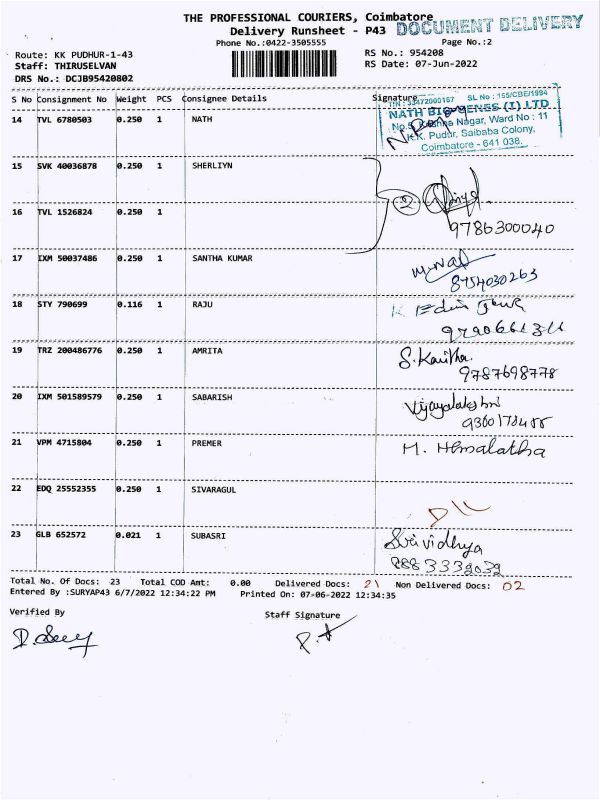 THE PROFESSIONAL COURIERS, Coimbatore
Delivery Runsheet - P43
DOCUMENT DELIVERY
Phone No.:0422-3505555
Page No.:2
Route: KK PUDHUR-1-43
RS No.: 954208
Staff: THIRUSELVAN
RS Date: 07-Jun-2022
DRS No.: DCJB95420802
S No Consignment No Weight PCS Consignee Details Signature
SL No : 155/CBE/1994
NATH BIOGENES (I) LTD
Nagar, Ward No : 11
K.K. Pudur, Saibaba Colony,
Coimbatore - 641 038.
14 TVL 6780503 0.250 1 NATH
15 SVK 40036878 0.250 1 SHERLIYN
2
16 TVL 1526824 0.250 1
9786300040
17 IXM 50037486 0.250 1 SANTHA KUMAR
8754030263
18 STY 790699 0.116 1 RAJU
19 TRZ 200486776 0.250 1 AMRITA
S. Kavitha.
9787698778
20 IXM 501589579 0.250 1 SABARISH
Vijayalakshmi
21 VPM 4715804 0.250 1 PREMER
M. Hemalatha
22 EDQ 25552355 0.250 1 SIVARAGUL
23 GLB 652572 0.021 1 SUBASRI
Srividhya
Total No. Of Docs: 23 Total COD Amt: 0.00 Delivered Docs: 21 Non Delivered Docs: 02
Entered By :SURYAP43 6/7/2022 12:34:22 PM Printed On: 07-06-2022 12:34:35
Verified By
Staff Signature